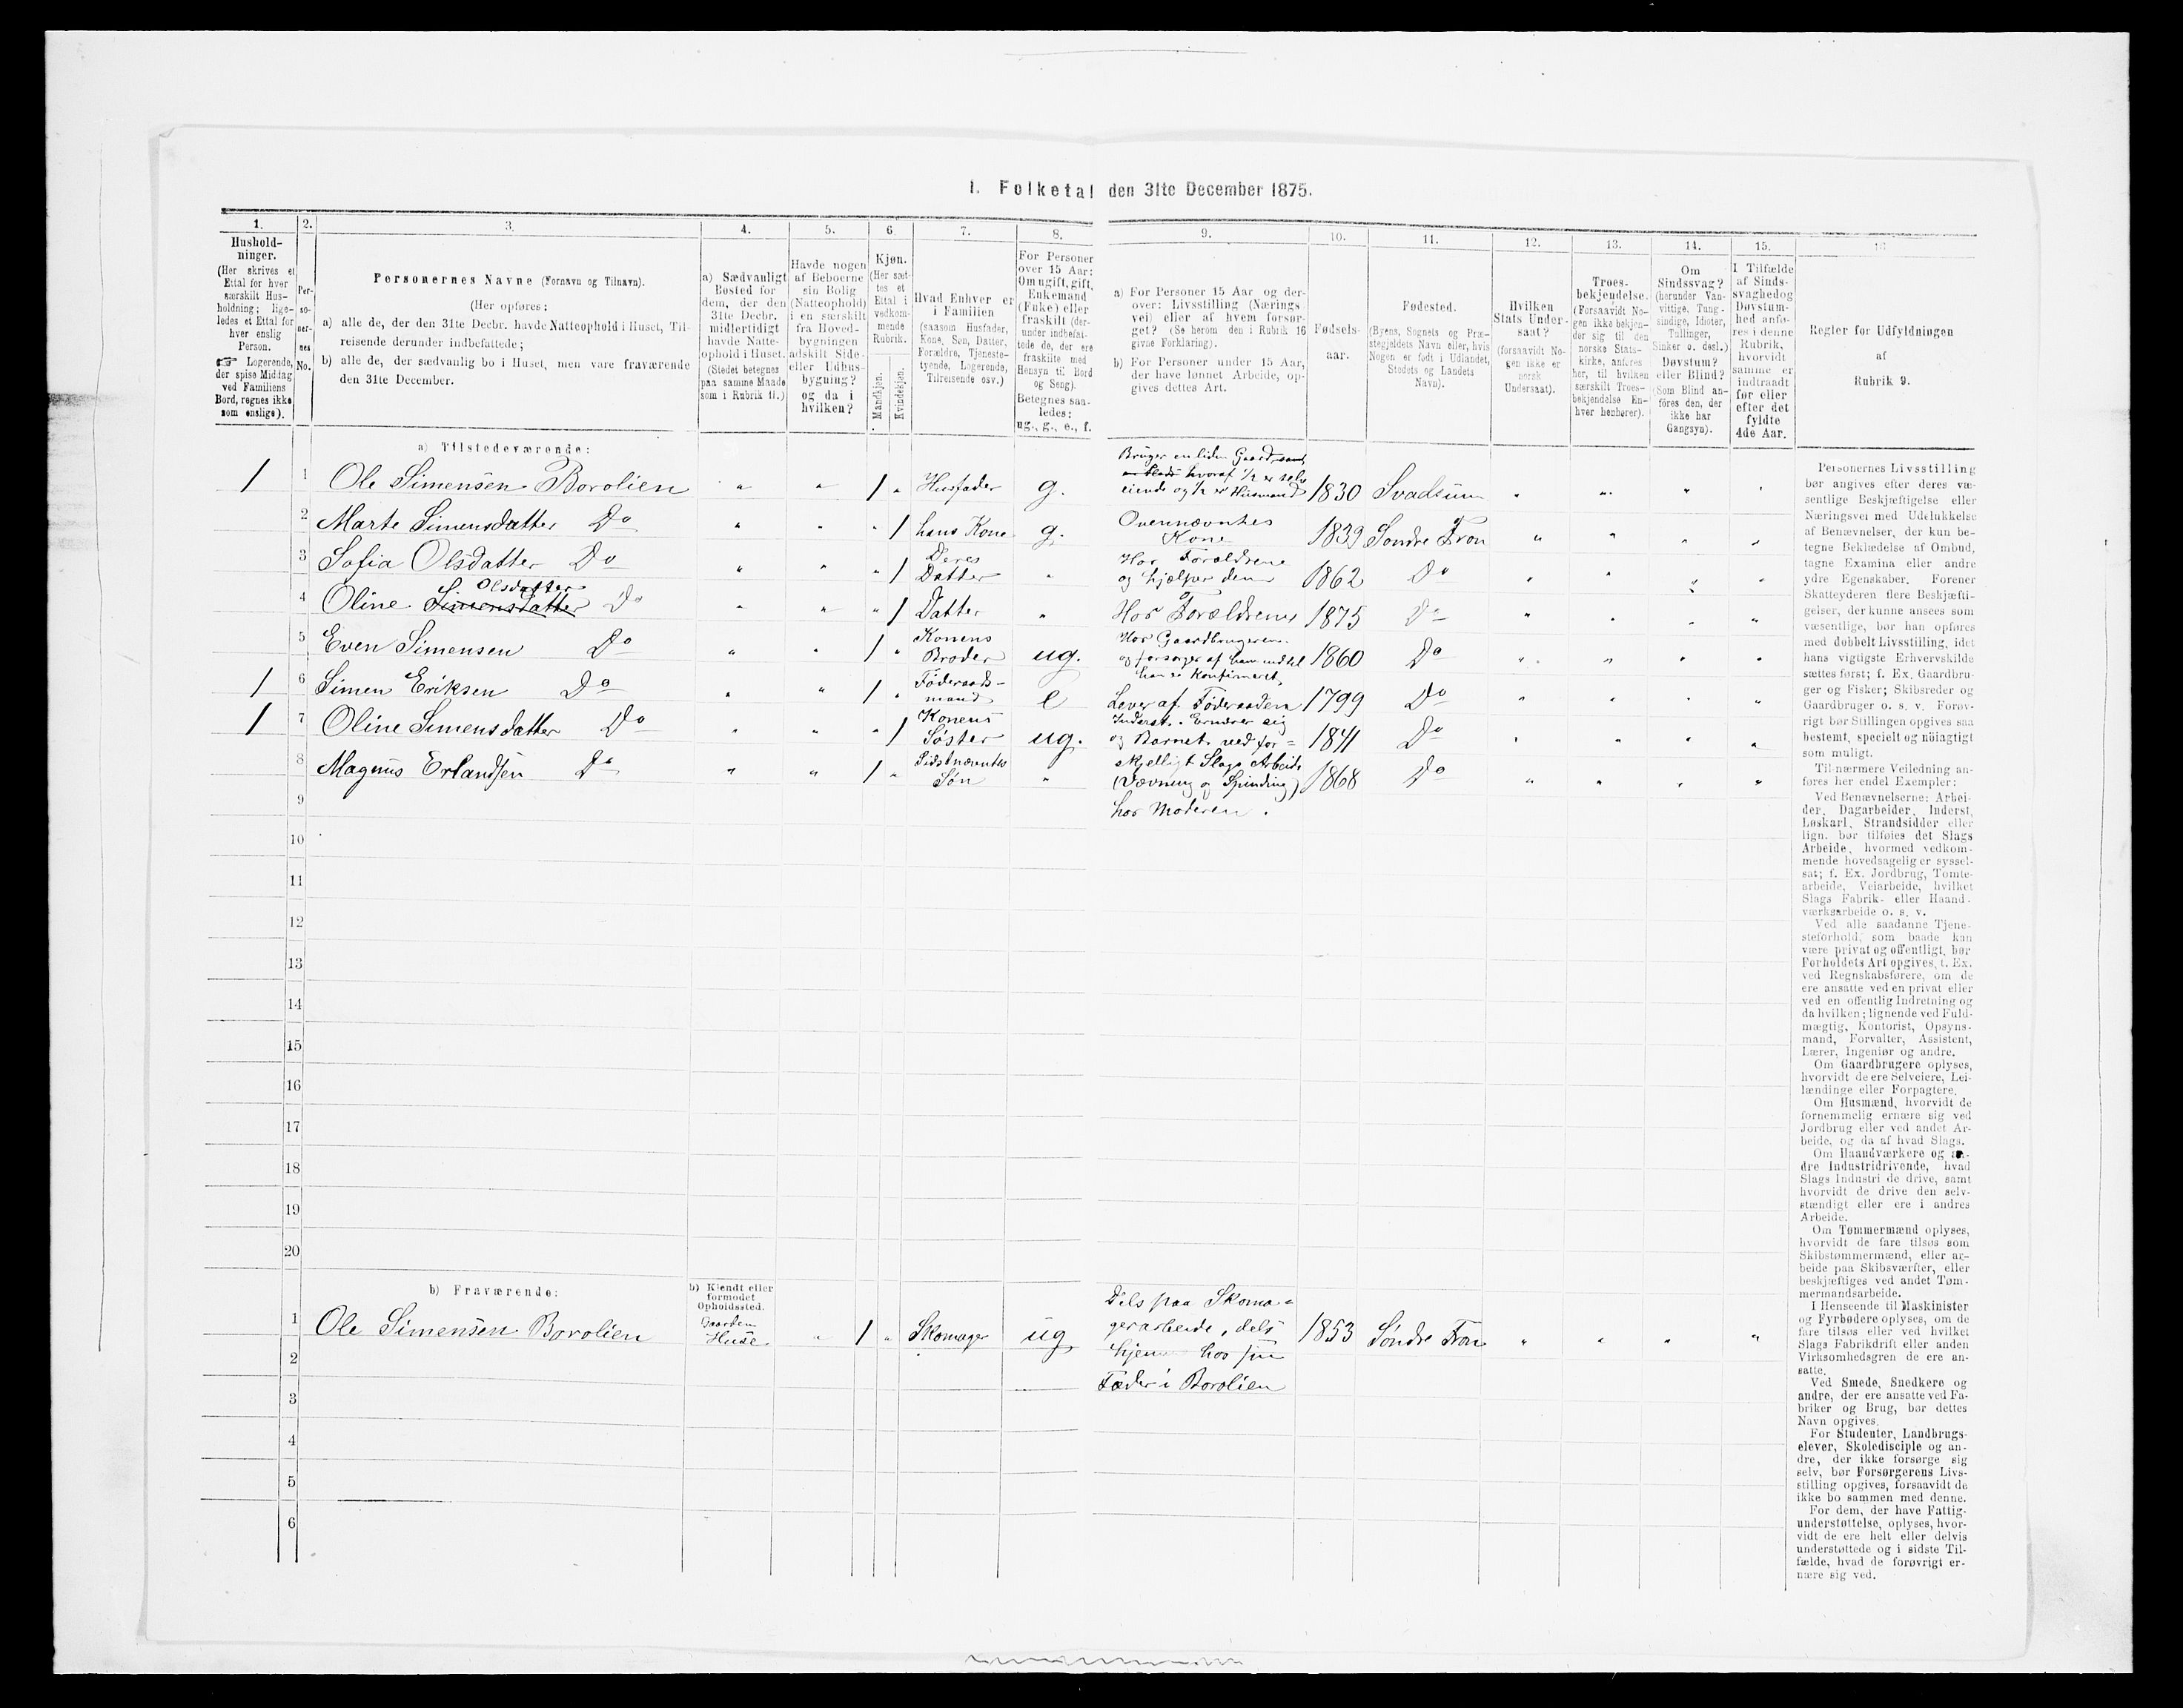 1. Folketal den 31te December 1875.
1.
2.
3.
4.
5.
6
7.
8.
9.
10.
11.
12.
13.
14.
15.
Hushold-
ninger.
(Her skrives et
Ettal for hver
særskilt Hus-
holdning; lige-
ledes et Ettal for
hver enslig
Person.
☞ Logerende,
der spise Middag
ved Familiens
Bord, regnes ikke
som enslige).
Per-
so-
ner-
nes
No.
Personernes Navne (Fornavn og Tilnavn).
(Her opføres:
a) alle de, der den 31te Decbr. havde Natteophold i Huset, Til-
reisende derunder indbefattede;
b) alle de, der sædvanlig bo i Huset, men vare fraværende
den 31te December.
a) Sædvanligt
Bosted for
dem, der den
31te Decbr.
midlertidigt
havde Natte-
ophold i Huset.
(Stedet betegnes
paa samme Maade
som i Rubrik 11.)
Havde nogen
af Beboerne
sin Bolig
(Natteophold)
i en særskilt
fra Hoved-
bygningen
adskilt Side-
eller Udhus-
bygning?
og da i
hvilken?
Kjøn.
(Her sæt-
tes et
Ettal i
vedkom-
mende
Rubrik.
Mandkjøn.
Kvindekjøn.
Hvad Enhver er
i Familien
(saasom Husfader,
Kone, Søn, Datter,
Forældre, Tjeneste-
tyende, Logerende,
Tilreisende osv.)
For Personer
over 15 Aar:
Om ugift, gift,
Enkemand
(Enke) eller
fraskilt (der-
under indbefat-
tede de, der ere
fraskilte med
Hensyn til Bord
og Seng).
Betegnes saa-
ledes:
ug., g., e., f.
a) For Personer 15 Aar og der-
over: Livsstilling (Nærings-
vei) eller af hvem forsør-
get? (Se herom den i Rubrik 16
givne Forklaring).
b) For Personer under 15 Aar,
der have lønnet Arbeide, op-
gives dettes Art.
Fødsels-
aar.
Fødested.
(Byens, Sognets og Præ-
stegjeldets Navn eller, hvis
Nogen er født i Udlandet,
Stedets og Landets
Navn).
Hvilken
Stats Under-
saat?
(forsaavidt No-
gen ikke er
norsk
Undersaat).
Troes-
bekjendelse.
(Forsaavidt No-
gen ikke bekjen-
der sig til den
norske Stats-
kirke, anføres
her, til hvilken
særskilt Troes-
bekjendelse En-
hver henhører).
Om
Sindssvag?
(herunder Van-
vittige, Tung-
sindige, Idioter,
Tullinger,
Sinker o. desl.)
Døvstum?
eller Blind?
(Som Blind an-
føres den, der
ikke har
Gangsyn).
I Tilfælde
af Sinds-
svaghed og
Døvstum-
hed anfø-
res i denne
Rubrik,
hvorvidt
samme er
indtraadt
før eller
efter det
fyldte
4de Aar.
Regler for Udfyldningen
af
Rubrik 9.
a) Tilstedeværende:
1 1 Ole Simensen Borolien " " 1 " Husfader g. Bruger en liden Gaard hvoraf 1/2 er selv eiende og 1/2 er Husmand 1830 Svadsum " " " "
2 Marte Simensdatter Do " " " 1 hans Kone g. Ovennævntes Kone 1839 Søndre Fron " " " "
3 Sofia Olsdatter Do " " " 1 Deres Datter " Hos Forældrene og hjælper dem 1862 Do " " " "
4 Oline Simensdatter Olsdatter Do " " " 1 Datter " Hos Forældrene 1875 Do " " " "
5 Even Simensen Do " " 1 " Konens Broder ug. Hos Gaardbrugeren og forsørges af ham indtil han er Konfirmeret. 1860 Do " " " "
1 6 Simen Eriksen Do " " 1 " Føderaads-mand e Lever af Føderaaden 1799 Do " " " "
1 7 Oline Simensdatter Do " " " 1 Konens Søster ug. Inderst. Ernærer sig og Barnet ved for= 1841 Do " " " "
8 Magnus Erlandsen Do " " 1 " Sidstnævntes Søn " skjelligt Slags Arbeide (Vævning og Spinding) 1868 Do " " " "
9 hos Moderen.
10
11
12
13
14
15
16
17
18
19
20
b) Fraværende:
b) Kjendt eller
formodet
Opholdssted.
1 Ole Simensen Borolien Gaarden Huse " 1 " Skomager ug Dels paa Skoma= gerarbeide, dels 1853 Søndre Fron " " " "
2 hjemme hos sin
3 Fader i Borolien
4
5
6
Personernes Livsstilling
bør angives efter deres væ-
sentlige Beskjæftigelse eller
Næringsvei med Udelukkelse
af Benævnelser, der kun be-
tegne Beklædelse af Ombud,
tagne Examina eller andre
ydre Egenskaber. Forener
Skatteyderen flere Beskjæfti-
gelser, der kunne ansees som
væsentlige, bør han opføres
med dobbelt Livsstilling, idet
hans vigtigste Erhvervskilde
sættes først; f. Ex. Gaardbru-
ger og Fisker; Skibsreder og
Gaardbruger o. s. v. Forøv-
rigt bør Stillingen opgives saa
bestemt, specielt og nöiagtigt
som muligt.
Til nærmere Veiledning an-
føres her endel Exempler:
Ved Benævnelserne: Arbei-
der, Dagarbeider, Inderst,
Løskarl, Strandsidder eller
lign. bør tilføies det Slags
Arbeide, hvormed vedkom-
mende hovedsagelig er syssel-
sat; f. Ex. Jordbrug, Tomte-
arbeide, Veiarbeide, hvilket
Slags Fabrik- eller Haand-
værksarbeide o. s. v.
Ved alle saadanne Tjene-
steforhold, som baade kan
være privat og offentligt, bør
Forholdets Art opgives, f. Ex.
ved Regnskabsførere, om de
ere ansatte ved en privat eller
ved en offentlig Indretning og
da hvilken; lignende ved Fuld-
mægtig, Kontorist, Opsyns-
mand, Forvalter, Assistent,
Lærer, Ingeniør og andre.
Om Gaardbrugere oplyses,
hvorvidt de ere Selveiere, Lei-
lændinge eller Forpagtere.
Om Husmænd, hvorvidt de
fornemmelig ernære sig ved
Jordbrug eller ved andet Ar-
beide, og da af hvad Slags.
Om Haandværkere og an-
dre Industridrivende, hvad
Slags Industri de drive, samt
hvorvidt de drive den selv-
stændigt eller ere i andres
Arbeide.
Om Tømmermænd oplyses,
hvorvidt de fare tilsøs som
Skibstømmermænd, eller ar-
beide paa Skibsværfter, eller
beskjæftiges ved andet Tøm-
mermandsarbeide.
I Henseende til Maskinister
og Fyrbødere oplyses, om de
fare tilsøs eller ved hvilket
Slags Fabrikdrift eller anden
Virksomhedsgren de ere an-
satte.
Ved Smede, Snedkere og
andre, der ere ansatte ved Fa-
briker og Brug, bør dettes
Navn opgives.
For Studenter, Landbrugs-
elever, Skoledisciple og an-
dre, der ikke forsørge sig
selv, bør Forsørgerens Livs-
stilling opgives, forsaavidt de
ikke bo sammen med denne.
For dem, der have Fattig-
understøttelse, oplyses, hvor-
vidt de ere helt eller delvis
understøttede og i sidste Til-
fælde, hvad de forøvrigt er-
nære sig ved.